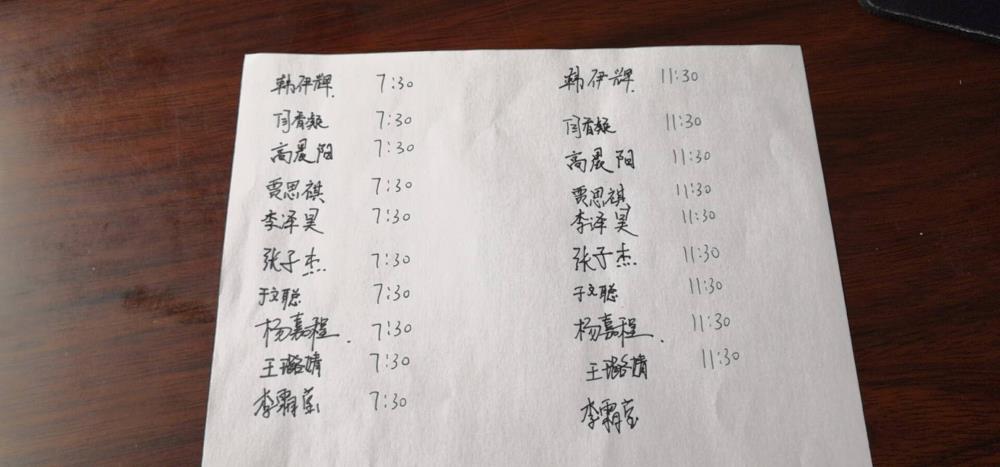 韩伊辉 7:30 韩伊辉 11:30
闫首凝 7:30 闫首凝 11:30
高晨阳 7:30 高晨阳 11:30
贾思祺 7:30 贾思祺 11:30
李泽昊 7:30 李泽昊 11:30
张子杰 7:30 张子杰 11:30
于文聪 7:30 于文聪 11:30
杨嘉程. 7:30 杨嘉程. 11:30
王璐婧 7:30 王璐婧 11:30
李霈莹 7:30 李霈莹